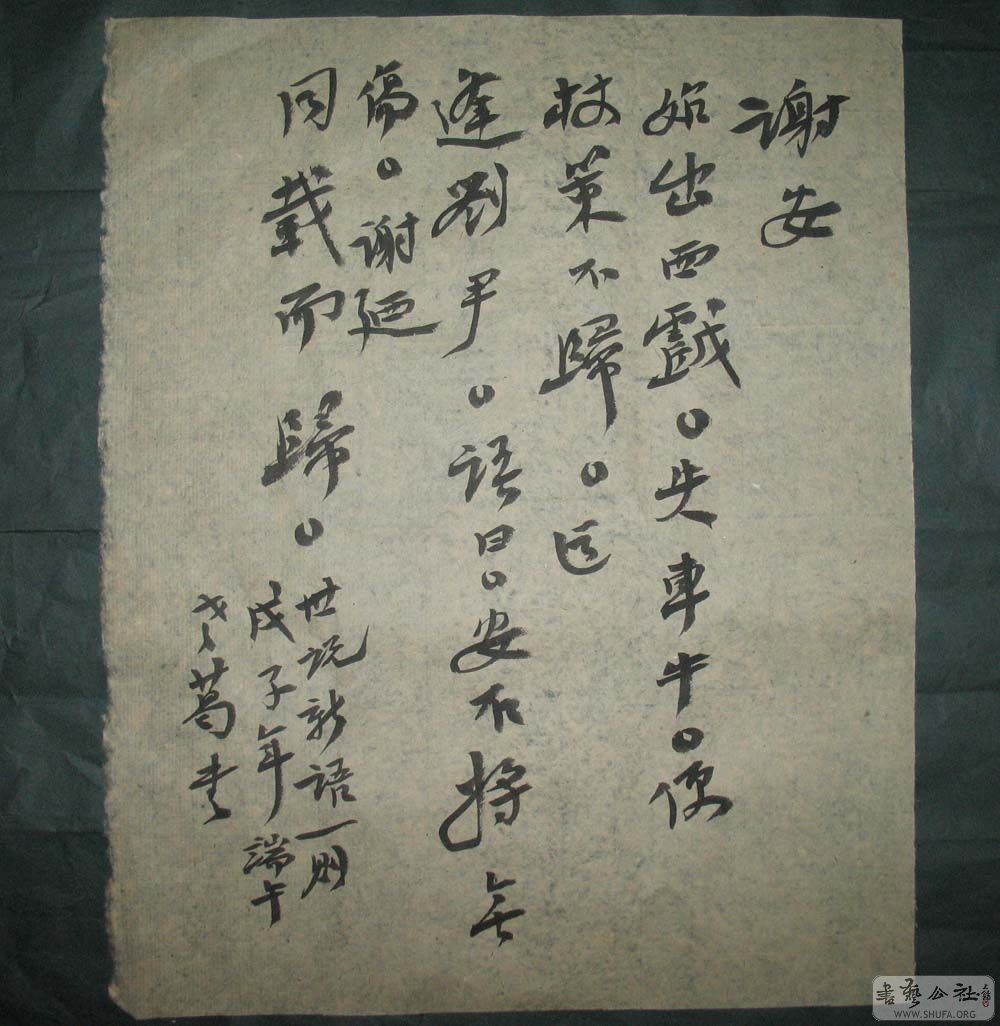 謝安
始出西戲。失車牛。便
杖策不歸。道
逢劉尹。語曰。安石將無
傷。謝迺
同載而歸。
世說新語一則
戊子年端午
葛書
書藝公社
WWW.SHUFA.ORG